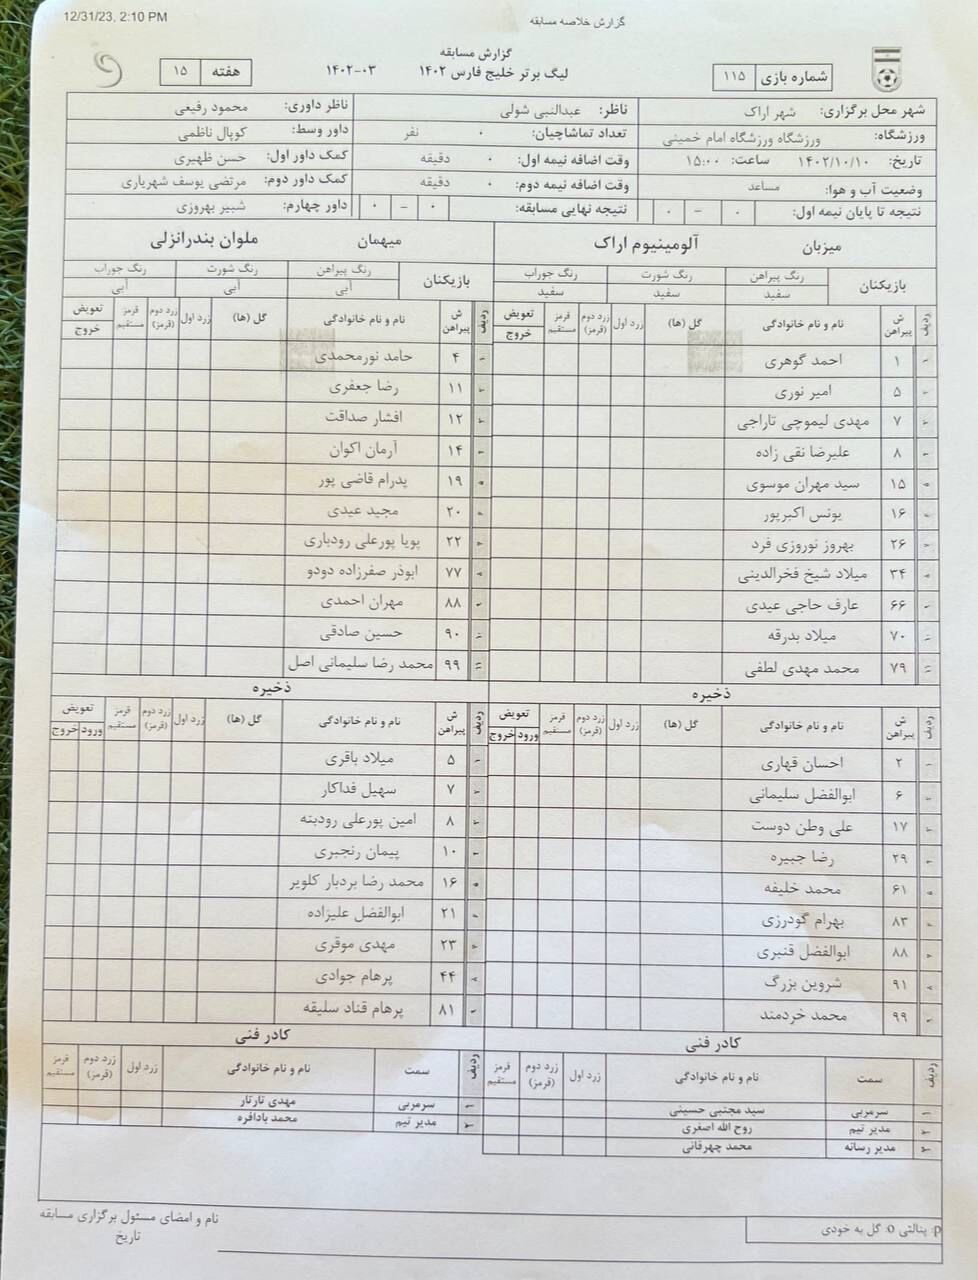 12/31/23, 2:10 PM
گزارش خلاصه مسابقه
گزارش مسابقه
لیگ برتر خلیج فارس ۱۴۰۲ ۰۳-۱۴۰۲
شماره بازی ۱۱۵
هفته ۱۵
شهر محل برگزاری: شهر اراک ناظر: عبدالنبی شولی ناظر داوری: محمود رفیعی
ورزشگاه: ورزشگاه ورزشگاه امام خمینی تعداد تماشاچیان: ۰ نفر داور وسط: کوپال ناظمی
تاریخ: ۱۴۰۲/۱۰/۱۰ ساعت: ۱۵:۰۰ وقت اضافه نیمه اول: ۰ دقیقه کمک داور اول: حسن ظهیری
وضعیت آب و هوا: مساعد وقت اضافه نیمه دوم: ۰ دقیقه کمک داور دوم: مرتضی یوسف شهریاری
نتیجه تا پایان نیمه اول: ۰ - ۰ نتیجه نهایی مسابقه: ۰ - ۰ داور چهارم: شبیر بهروزی
میزبان آلومینیوم اراک
بازیکنان رنگ پیراهن رنگ شورت رنگ جوراب
سفید سفید سفید
ردیف ش پیراهن نام و نام خانوادگی گل (ها) زرد اول زرد دوم (قرمز) قرمز مستقیم تعویض خروج
۱ احمد گوهری
۵ امیر نوری
۷ مهدی لیموچی تاراجی
۸ علیرضا نقی زاده
۱۵ سید مهران موسوی
۱۶ یونس اکبرپور
۲۶ بهروز نوروزی فرد
۳۴ میلاد شیخ فخرالدینی
۶۶ عارف حاجی عیدی
۷۰ میلاد بدرقه
۷۹ محمد مهدی لطفی
ذخیره
ردیف ش پیراهن نام و نام خانوادگی گل (ها) زرد اول زرد دوم (قرمز) قرمز مستقیم تعویض ورود خروج
۲ احسان قهاری
۶ ابوالفضل سلیمانی
۱۷ علی وطن دوست
۲۹ رضا جبیره
۶۱ محمد خلیفه
۸۳ بهرام گودرزی
۸۸ ابوالفضل قنبری
۹۱ شروین بزرگ
۹۹ محمد خردمند
کادر فنی
ردیف سمت نام و نام خانوادگی زرد اول زرد دوم (قرمز) قرمز مستقیم
۱ سرمربی سید مجتبی حسینی
۲ مدیر تیم روح الله اصغری
۳ مدیر رسانه محمد چهرقانی
میهمان ملوان بندرانزلی
بازیکنان رنگ پیراهن رنگ شورت رنگ جوراب
آبی آبی آبی
ردیف ش پیراهن نام و نام خانوادگی گل (ها) زرد اول زرد دوم (قرمز) قرمز مستقیم تعویض خروج
۴ حامد نورمحمدی
۱۱ رضا جعفری
۱۲ افشار صداقت
۱۴ آرمان اکوان
۱۹ پدرام قاضی پور
۲۰ مجید عیدی
۲۲ پویا پورعلی رودباری
۷۷ ابوذر صفرزاده دودو
۸۸ مهران احمدی
۹۰ حسین صادقی
۹۹ محمد رضا سلیمانی اصل
ذخیره
ردیف ش پیراهن نام و نام خانوادگی گل (ها) زرد اول زرد دوم (قرمز) قرمز مستقیم تعویض ورود خروج
۵ میلاد باقری
۷ سهیل فداکار
۸ امین پورعلی رودبنه
۱۰ پیمان رنجبری
۱۶ محمد رضا بردبار کلویر
۲۱ ابوالفضل علیزاده
۲۳ مهدی موقری
۴۴ پرهام جوادی
۸۱ پرهام قناد سلیقه
کادر فنی
ردیف سمت نام و نام خانوادگی زرد اول زرد دوم (قرمز) قرمز مستقیم
۱ سرمربی مهدی تارتار
۲ مدیر تیم محمد بادافره
p: پنالتی o: گل به خودی
نام و امضای مسئول برگزاری مسابقه
تاریخ